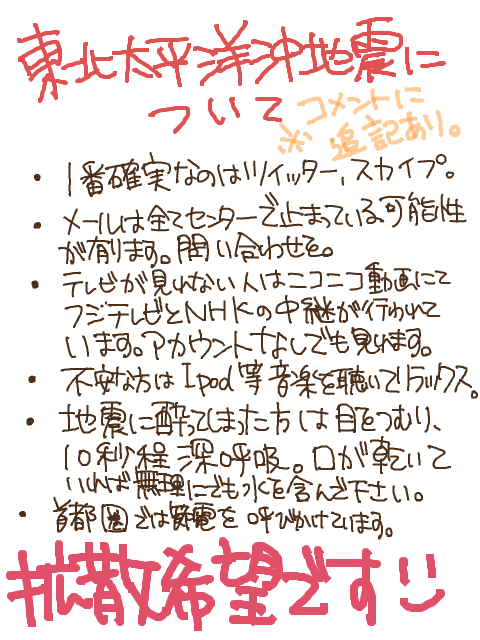 東北太平洋沖地震に
ついて
コメントに
※ 追記あり。
・1番確実なのはツイッター,スカイプ。
・メールは全てセンターで止まっている可能性
が有ります。問い合わせを。
・テレビが見れない人はニコニコ動画にて
フジテレビとNHKの中継が行われて
います。アカウントなしでも見れます。
・不安な方はIpod等音楽を聴いてリラックス。
・地震に酔ってしまった方は目をつむり、
10秒程深呼吸。口が乾いて
いれば無理にでも水を含んで下さい。
・首都圏では節電を呼びかけています。
拡散希望です!!